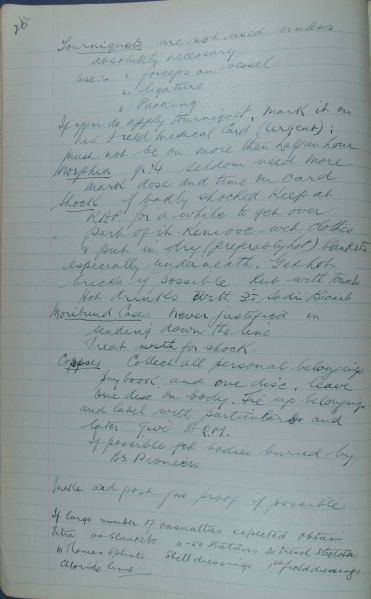 28
Tourniquets are not used unless
absolutely necessary
use:- 1. forceps on vessel
2. ligature
3. Packing
If you do apply tourniquet, mark it on
his Field Medical Card (urgent);
must not be on more than half an hour
Morphia gr ¼ seldom need more
mark dose and time on card
Shock if badly shocked keep at
RAP for a while to get over
part of it. Remove wet clothes
& put in dry (preferably hot) blankets
especially underneath. Get hot
bricks if possible
Hot drinks with Sodii Bicarb
Moribund Cases never justified in
sending down the line
Treat for shock.
Corpses Collect all personal belongings
paybook, and one disc, leave
one disc on body. Tie up belongings
and label with particulars and
later give to QM.
If possible get bodies buried by
Pioneers
make aid post gas proof if possible
If large number of casualties expected obtain
Extra 100 blankets stretchers trench stretcher
Thomas Splints shell dressings field dressings
Chloride lime